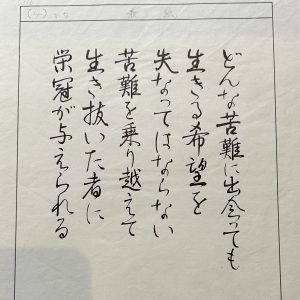 どんな苦難に出会っても
生きる希望を
失なってはならない
苦難を乗り越えて
生き抜いた者に
栄冠が与えられる